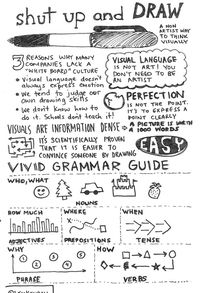 shut up and DRAW
A NON
ARTIST WAY
TO THINK
VISUALLY
3 REASONS WHY MANY
COMPANIES LACK A
"WHITE BOARD" CULTURE
• Visual language doesn't
always express emotion
• We tend to judge our
own drawing skills
• We don't know how to
do it. Schools don't teach it!
VISUAL LANGUAGE
IS NOT ART! YOU
DON'T NEED TO BE
AN ARTIST
PERFECTION
IS NOT THE POINT.
IT'S TO EXPRESS A
POINT CLEARLY
VISUALS ARE INFORMATION DENSE
A PICTURE IS WORTH
A 1000 WORDS
IT'S SCIENTIFICALLY PROVEN
THAT IT IS EASIER TO
CONVINCE SOMEONE BY DRAWING
EASY
VIVID GRAMMAR GUIDE
WHO, WHAT
NOUNS
HOW MUCH
ADJECTIVES
WHERE
PREPOSITIONS
WHEN
TENSE
WHY
PHRASE
HOW
VERBS